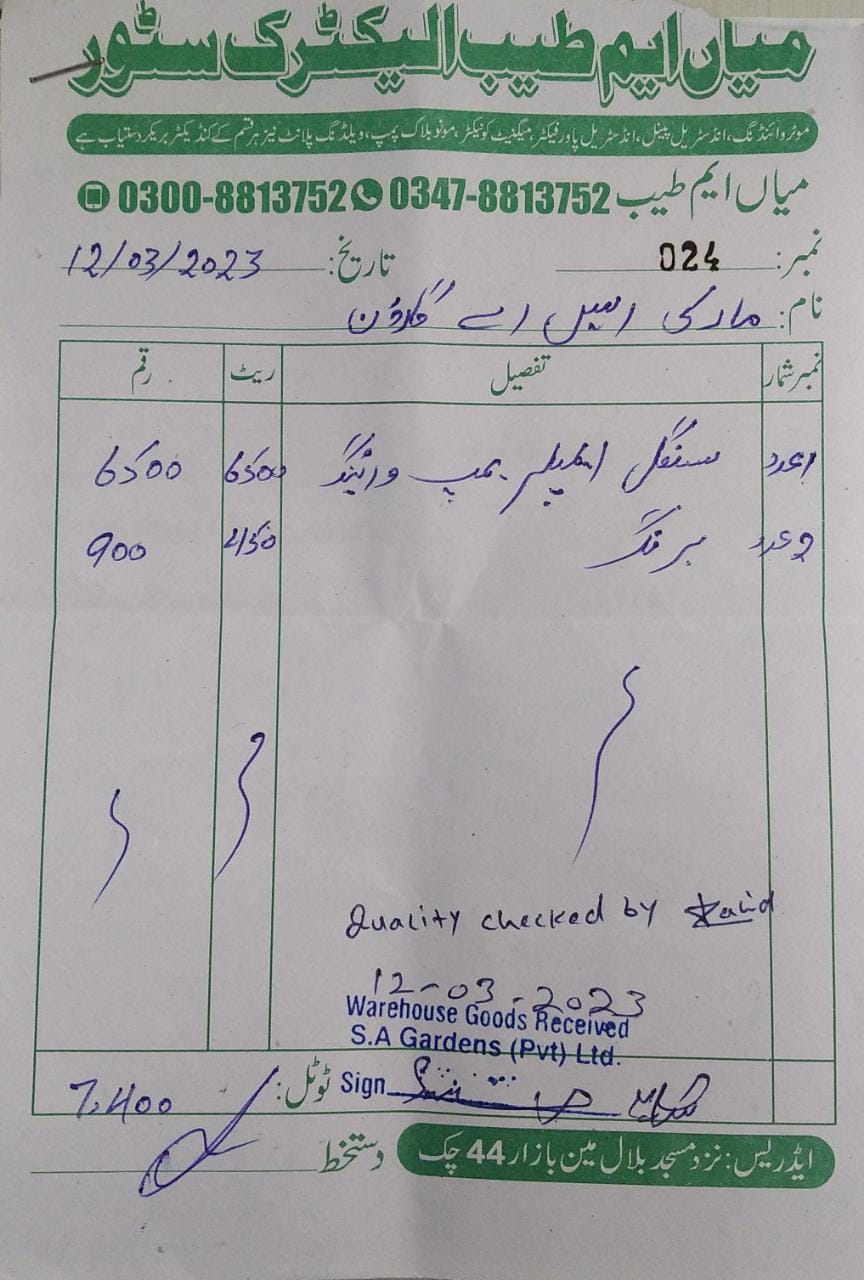 میاں ایم طیب الیکٹرک سٹور
موٹر وائنڈنگ، انڈسٹریل پینل، انڈسٹریل پاور فیکٹر، میگنیٹ کونیکٹر، مونو بلاک پمپ، ویلڈنگ پلانٹ نیز ہر قسم کے کنڈیکٹر بریکر دستیاب ہے
میاں ایم طیب 0347-8813752 0300-8813752
نمبر: 024 تاریخ: 12/03/2023
نام: مارکی ایس اے گارڈن
نمبر شمار تفصیل ریٹ رقم
1 عدد سنگل امپیلر پمپ وائینڈنگ 6500 6500
2 عدد بیرنگ 450 900
Quality checked by
12-03-2023
Warehouse Goods Received
S.A Gardens (Pvt) Ltd.
Sign
ٹوٹل: 7,400
ایڈریس: نزد مسجد بلال مین بازار 44 چک دستخط